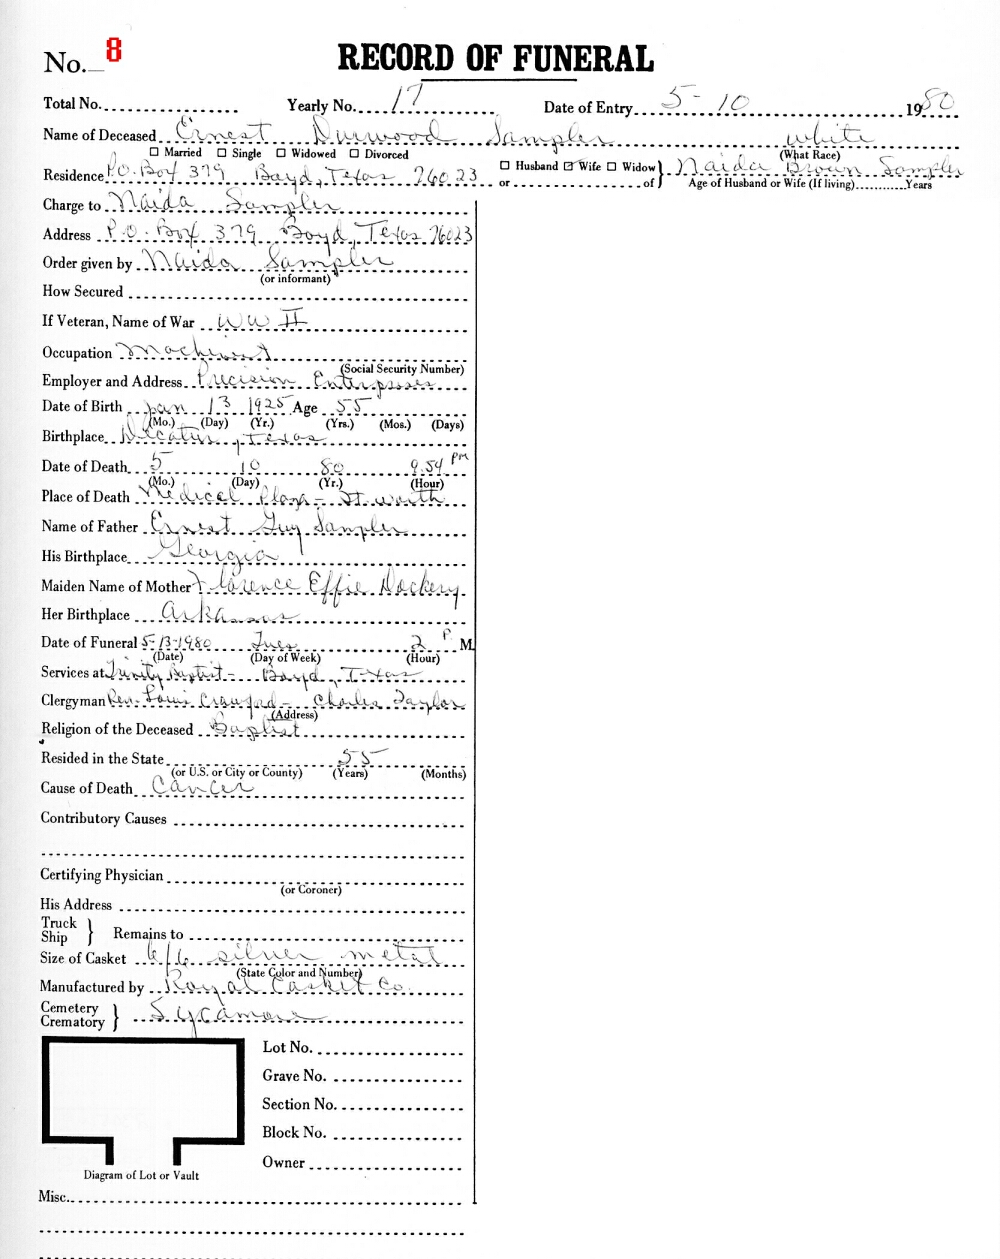 No. 8
RECORD OF FUNERAL
Total No. Yearly No. 17 Date of Entry 5-10 1980
Name of Deceased Ernest Durwood Sampler white
(What Race)
☐ Married ☐ Single ☐ Widowed ☐ Divorced
Residence P.O. Box 379 Boyd, Texas 76023 ☐ Husband ☑ Wife ☐ Widow } Naida Brown Sampler
or of } Age of Husband or Wife (If living) Years
Charge to Naida Sampler
Address P.O. Box 379 Boyd, Texas 76023
Order given by Naida Sampler
(or informant)
How Secured
If Veteran, Name of War WW II
Occupation Machinist
(Social Security Number)
Employer and Address Precision Enterprises
Date of Birth Jan 13 1925 Age 55
(Mo.) (Day) (Yr.) (Yrs.) (Mos.) (Days)
Birthplace Decatur, Texas
Date of Death 5 10 80 9:54 PM
(Mo.) (Day) (Yr.) (Hour)
Place of Death Medical Plaza - Ft. Worth
Name of Father Ernest Guy Sampler
His Birthplace Georgia
Maiden Name of Mother Florence Effie Dockery
Her Birthplace Arkansas
Date of Funeral 5-13-1980 Tues 2 P. M.
(Date) (Day of Week) (Hour)
Services at Trinity Baptist - Boyd, Texas
Clergyman Rev. Louis Crawford - Charles Taylor
(Address)
Religion of the Deceased Baptist
Resided in the State 55
(or U.S. or City or County) (Years) (Months)
Cause of Death Cancer
Contributory Causes
Certifying Physician
(or Coroner)
His Address
Truck
Ship } Remains to
Size of Casket 6/6 silver metal
(State Color and Number)
Manufactured by Royal Casket Co.
Cemetery
Crematory } Sycamore
Lot No.
Grave No.
Section No.
Block No.
Owner
Diagram of Lot or Vault
Misc.